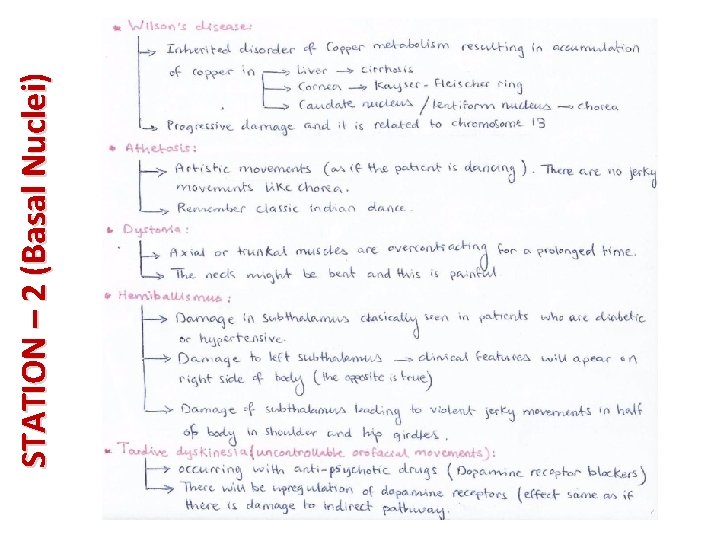 STATION – 2 (Basal Nuclei)
* Wilson's disease:
→ Inherited disorder of Copper metabolism resulting in accumulation
of copper in → Liver → cirrhosis
→ Cornea → Kayser-Fleischer ring
→ Caudate nucleus / lentiform nucleus → chorea
→ Progressive damage and it is related to chromosome 13
* Athetosis:
→ Artistic movements (as if the patient is dancing). There are no jerky
movements like chorea.
→ Remember classic indian dance.
* Dystonia:
→ Axial or trunkal muscles are overcontracting for a prolonged time.
→ The neck might be bent and this is painful.
* Hemiballismus:
→ Damage in subthalamus clasically seen in patients who are diabetic
or hypertensive.
→ Damage to left subthalamus → clinical features will apear on
right side of body (the opposite is true)
→ Damage of subthalamus leading to violent jerky movements in half
of body in shoulder and hip girdles.
* Tardive dyskinesia (uncontrollable orofacial movements):
→ occurring with anti-psychotic drugs (Dopamine receptor blockers)
→ There will be upregulation of dopamine receptors (effect same as if
there is damage to indirect pathway.